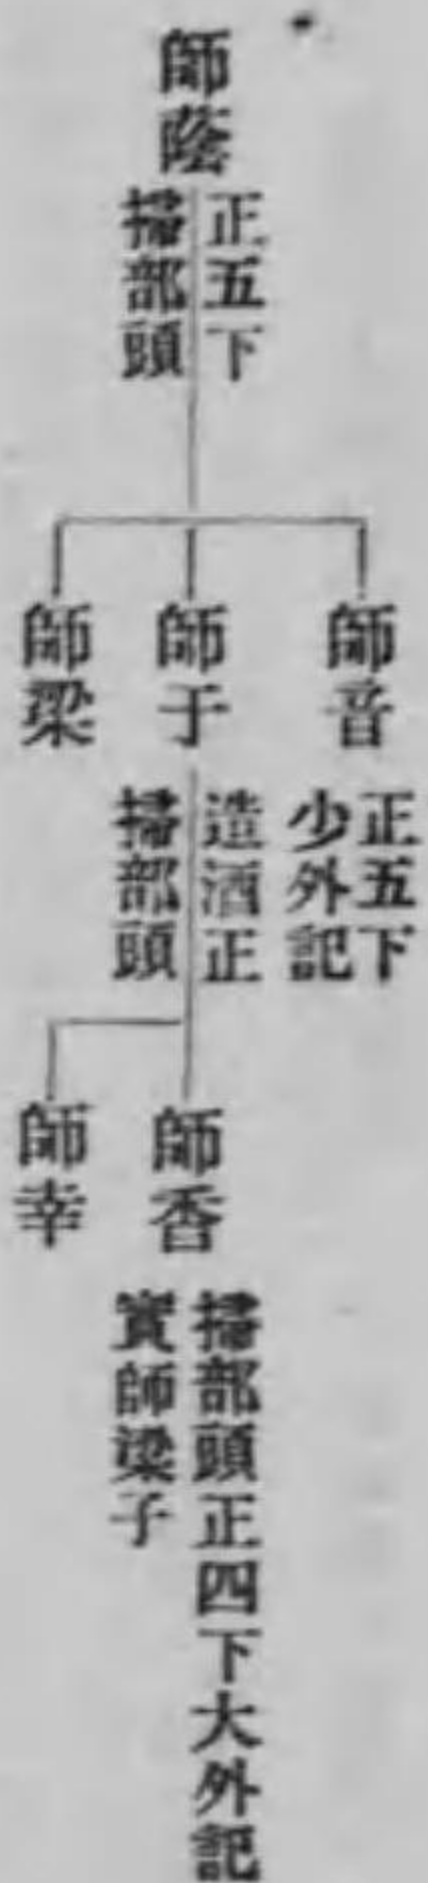 師蔭
正五下
掃部頭
師音
正五下
少外記
師于
造酒正
掃部頭
師梁
師香
掃部頭正四下大外記
實師梁子
師幸